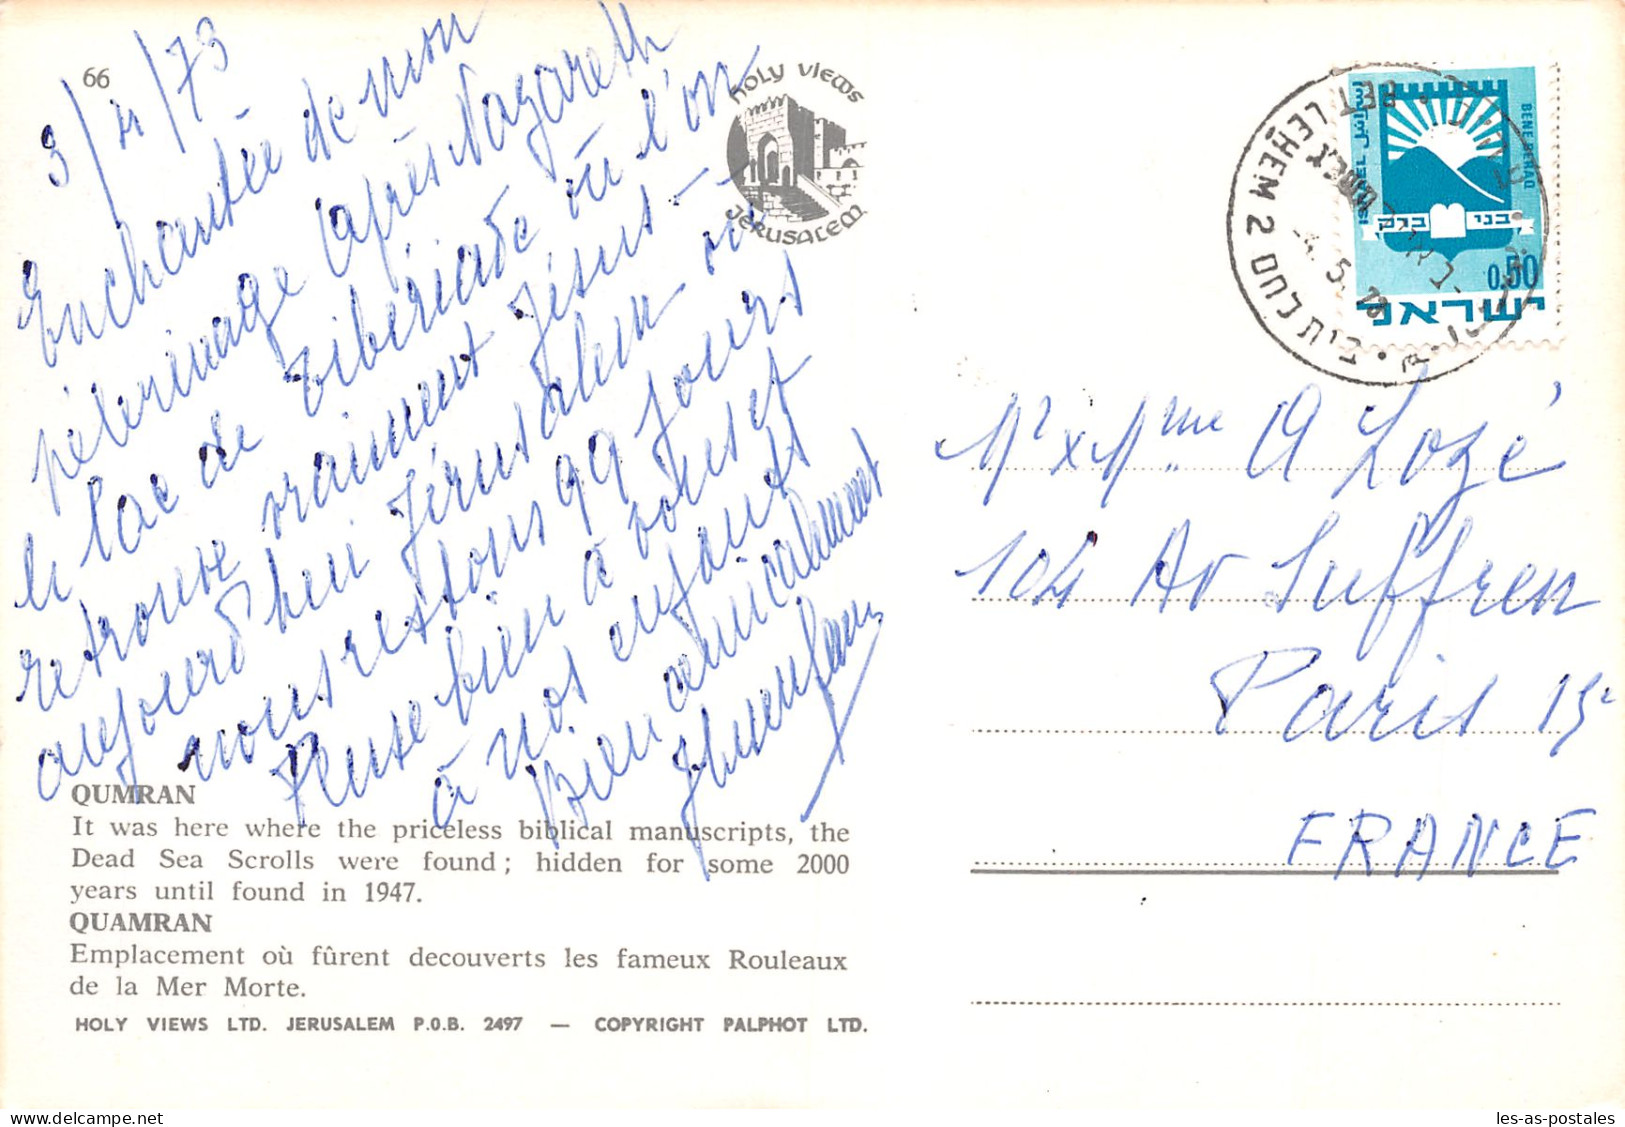 66
3/4/73
Enchantée de mon
pélerinage après Nazareth
le lac de Tibériade où l'on
retrouve vraiment Jésus -
aujourd'hui Jérusalem où
nous restons qq jours
Pense bien à vous et
à vos enfants
Bien amicalement
HOLY VIEWS
JERUSALEM
BET LEHEM 2
בית לחם
ISRAEL
BENE BERAQ
בני ברק
0.50
ישראל
Mr x Mme A Lozé
104 Av Suffren
Paris 15e
FRANCE
QUMRAN
It was here where the priceless biblical manuscripts, the
Dead Sea Scrolls were found; hidden for some 2000
years until found in 1947.
QUAMRAN
Emplacement où fûrent decouverts les fameux Rouleaux
de la Mer Morte.
HOLY VIEWS LTD. JERUSALEM P.O.B. 2497 — COPYRIGHT PALPHOT LTD.
les-as-postales